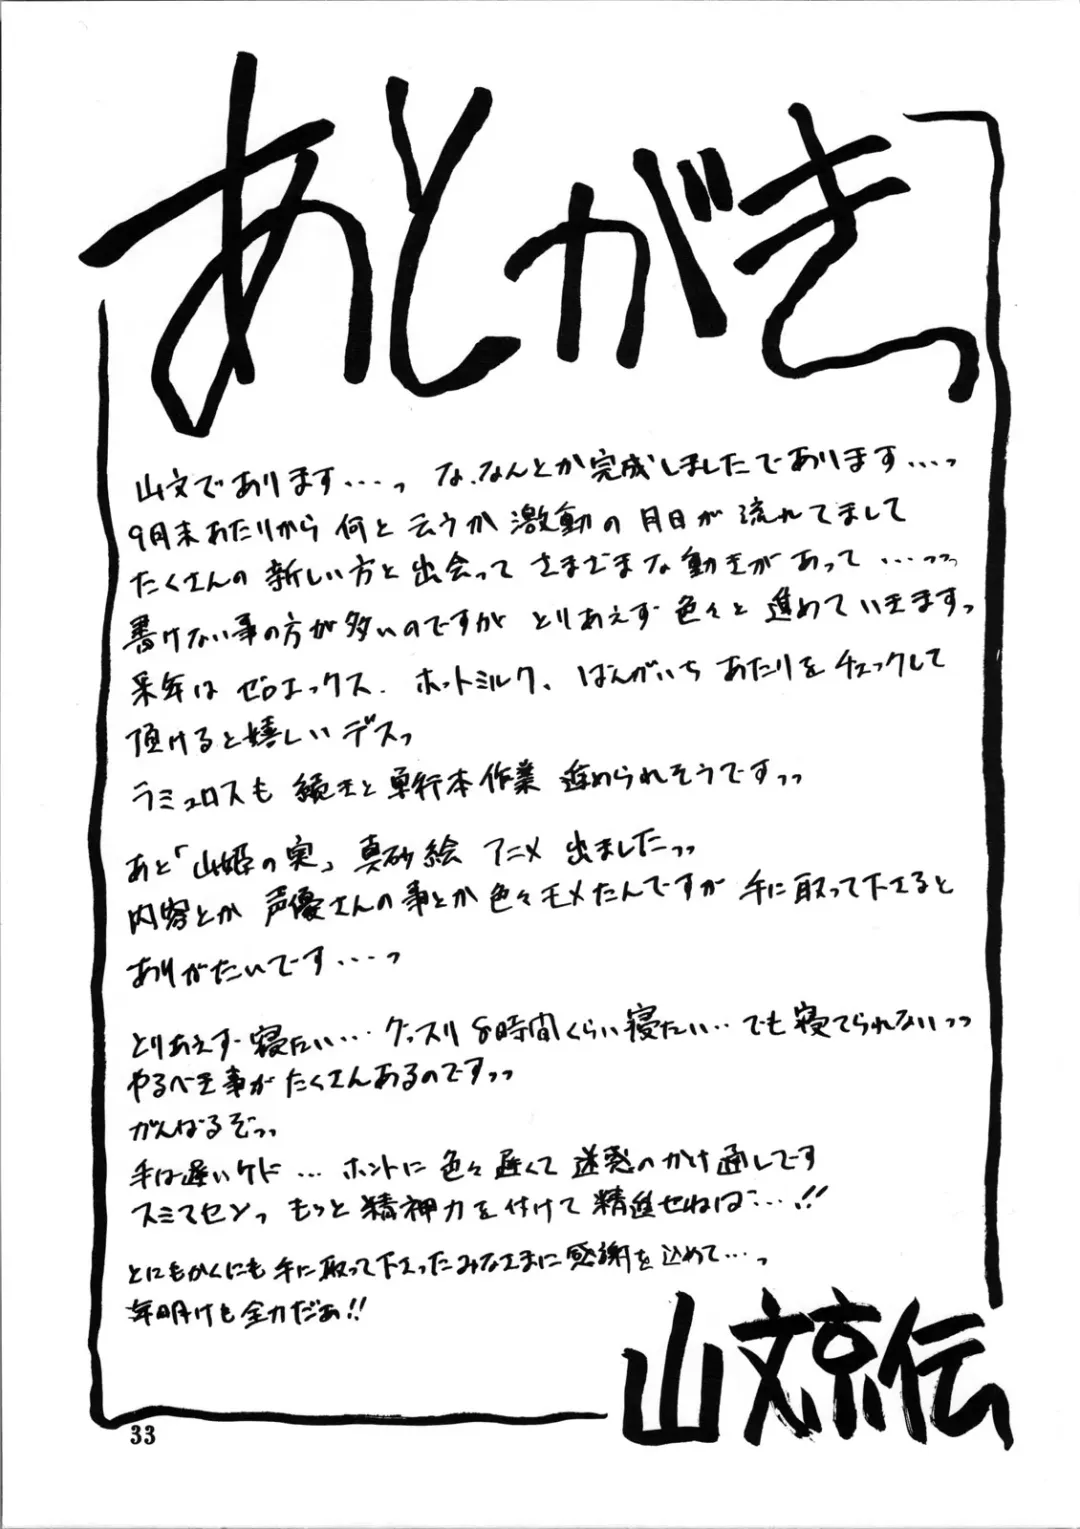 あとがきっ
山文であります…っ な、なんとか完成しましたであります…っ
9月末あたりから 何と云うか 激動の月日が流れてまして
たくさんの新しい方と出会って さまざまな動きがあって …っっ
書けない事の方が多いのですが とりあえず色々と進めていきますっ
来年は ゼロエックス、ホットミルク、ばんがいち あたりをチェックして
頂けると嬉しいデスっ
ラミュロスも 続きと単行本作業 進められそうですっっ
あと「山姫の実」真砂絵 アニメ 出ましたっっ
内容とか 声優さんの事とか色々モメたんですが 手に取って下さると
ありがたいです…っ
とりあえず寝たい… グッスリ8時間くらい寝たい… でも寝てられないっっ
やるべき事がたくさんあるのですっっ
がんばるぞっっ
手は遅いケド … ホントに色々遅くて 迷惑のかけ通しです
スミマセンっ もっと精神力を付けて 精進せねば…!!
とにもかくにも手に取って下さったみなさまに感謝を込めて…っ
年明けも全力だぁ!!
山文京伝
33